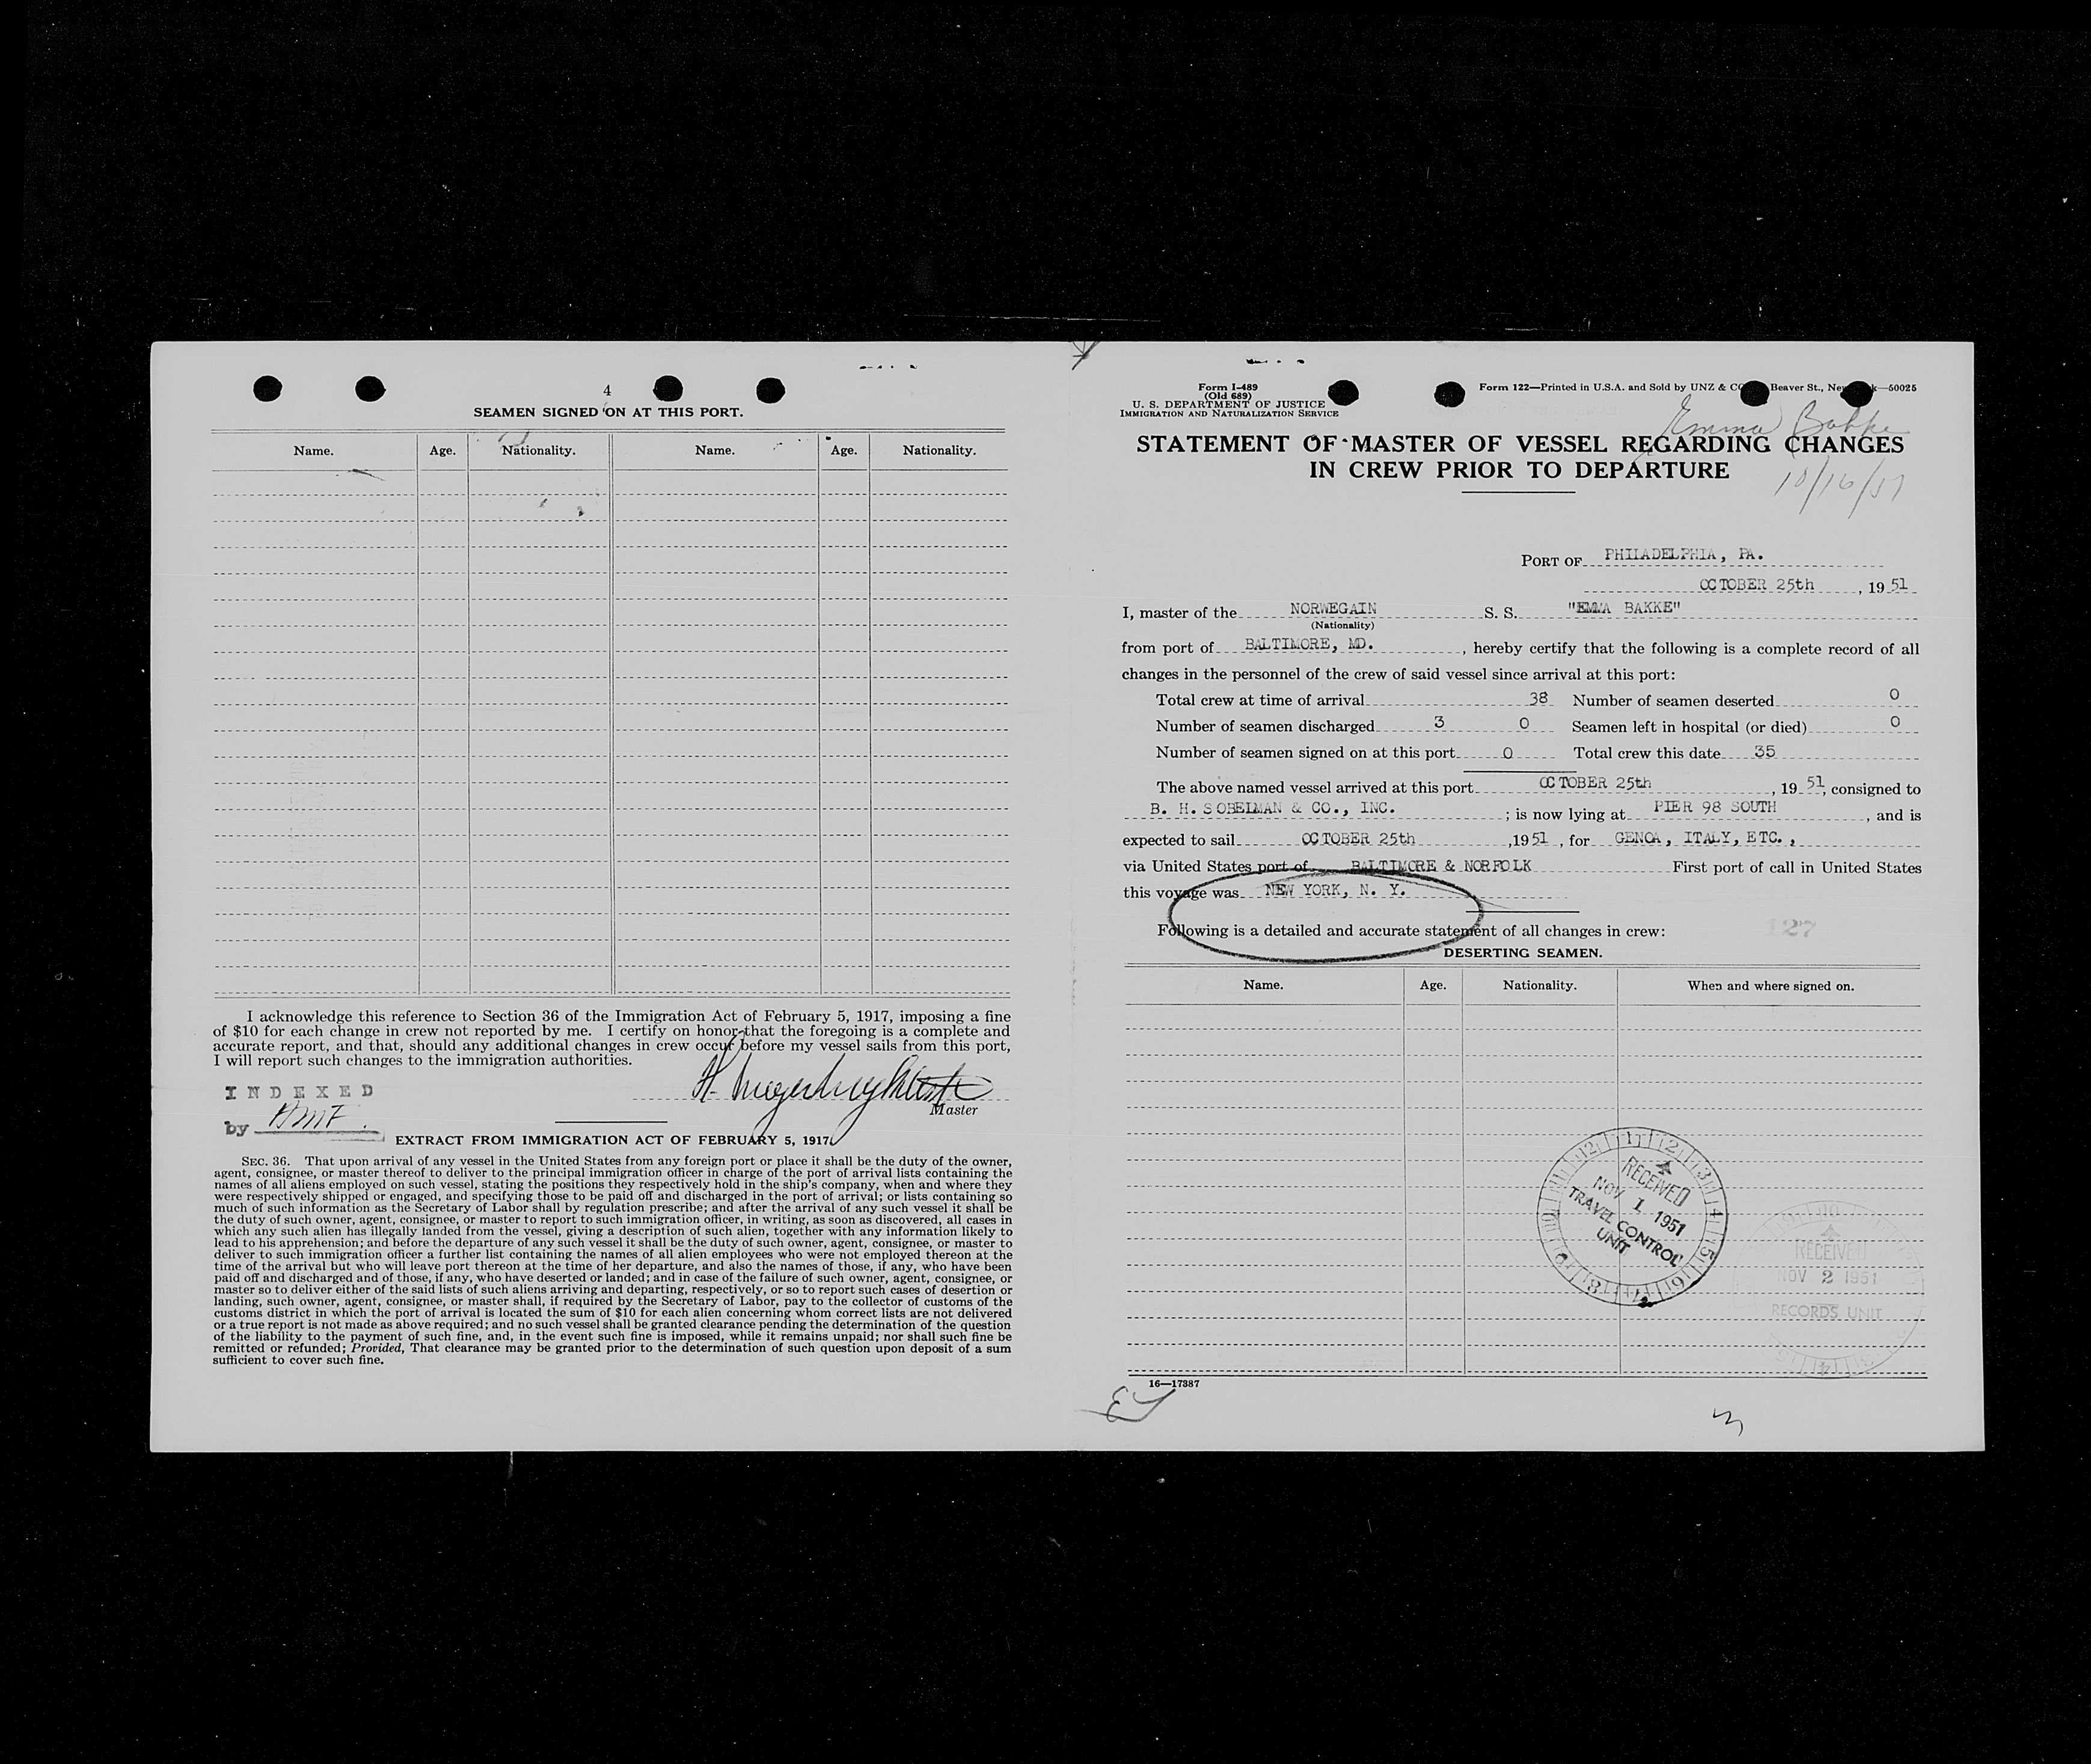 4
SEAMEN SIGNED ON AT THIS PORT.
Name. Age. Nationality. Name. Age. Nationality.
I acknowledge this reference to Section 36 of the Immigration Act of February 5, 1917, imposing a fine
of $10 for each change in crew not reported by me. I certify on honor that the foregoing is a complete and
accurate report, and that, should any additional changes in crew occur before my vessel sails from this port,
I will report such changes to the immigration authorities.
INDEXED
by
Master
EXTRACT FROM IMMIGRATION ACT OF FEBRUARY 5, 1917.
SEC. 36. That upon arrival of any vessel in the United States from any foreign port or place it shall be the duty of the owner,
agent, consignee, or master thereof to deliver to the principal immigration officer in charge of the port of arrival lists containing the
names of all aliens employed on such vessel, stating the positions they respectively hold in the ship's company, when and where they
were respectively shipped or engaged, and specifying those to be paid off and discharged in the port of arrival; or lists containing so
much of such information as the Secretary of Labor shall by regulation prescribe; and after the arrival of any such vessel it shall be
the duty of such owner, agent, consignee, or master to report to such immigration officer, in writing, as soon as discovered, all cases in
which any such alien has illegally landed from the vessel, giving a description of such alien, together with any information likely to
lead to his apprehension; and before the departure of any such vessel it shall be the duty of such owner, agent, consignee, or master to
deliver to such immigration officer a further list containing the names of all alien employees who were not employed thereon at the
time of the arrival but who will leave port thereon at the time of her departure, and also the names of those, if any, who have been
paid off and discharged and of those, if any, who have deserted or landed; and in case of the failure of such owner, agent, consignee, or
master so to deliver either of the said lists of such aliens arriving and departing, respectively, or so to report such cases of desertion or
landing, such owner, agent, consignee, or master shall, if required by the Secretary of Labor, pay to the collector of customs of the
customs district in which the port of arrival is located the sum of $10 for each alien concerning whom correct lists are not delivered
or a true report is not made as above required; and no such vessel shall be granted clearance pending the determination of the question
of the liability to the payment of such fine, and, in the event such fine is imposed, while it remains unpaid; nor shall such fine be
remitted or refunded; Provided, That clearance may be granted prior to the determination of such question upon deposit of a sum
sufficient to cover such fine.
Form I-489
(Old 689)
U. S. DEPARTMENT OF JUSTICE
IMMIGRATION AND NATURALIZATION SERVICE
Form 122—Printed in U.S.A. and Sold by UNZ & Beaver St., 50025
Emma Bakke
STATEMENT OF MASTER OF VESSEL REGARDING CHANGES
IN CREW PRIOR TO DEPARTURE
10/16/51
PORT OF PHILADELPHIA, PA.
OCTOBER 25th, 1951
I, master of the NORWEGAIN S. S. "EMMA BAKKE"
(Nationality)
from port of BALTIMORE, MD., hereby certify that the following is a complete record of all
changes in the personnel of the crew of said vessel since arrival at this port:
Total crew at time of arrival 38 Number of seamen deserted 0
Number of seamen discharged 3 0 Seamen left in hospital (or died) 0
Number of seamen signed on at this port 0 Total crew this date 35
The above named vessel arrived at this port OCTOBER 25th, 1951, consigned to
B. H. SOBELMAN & CO., INC.; is now lying at PIER 98 SOUTH, and is
expected to sail OCTOBER 25th, 1951, for GENOA, ITALY, ETC.,
via United States port of BALTIMORE & NORFOLK First port of call in United States
this voyage was NEW YORK, N. Y.
Following is a detailed and accurate statement of all changes in crew:
127
DESERTING SEAMEN.
Name. Age. Nationality. When and where signed on.
RECEIVED
NOV 1 1951
TRAVEL CONTROL
UNIT
RECEIVED
NOV 2 1951
RECORDS UNIT
16—17387
3